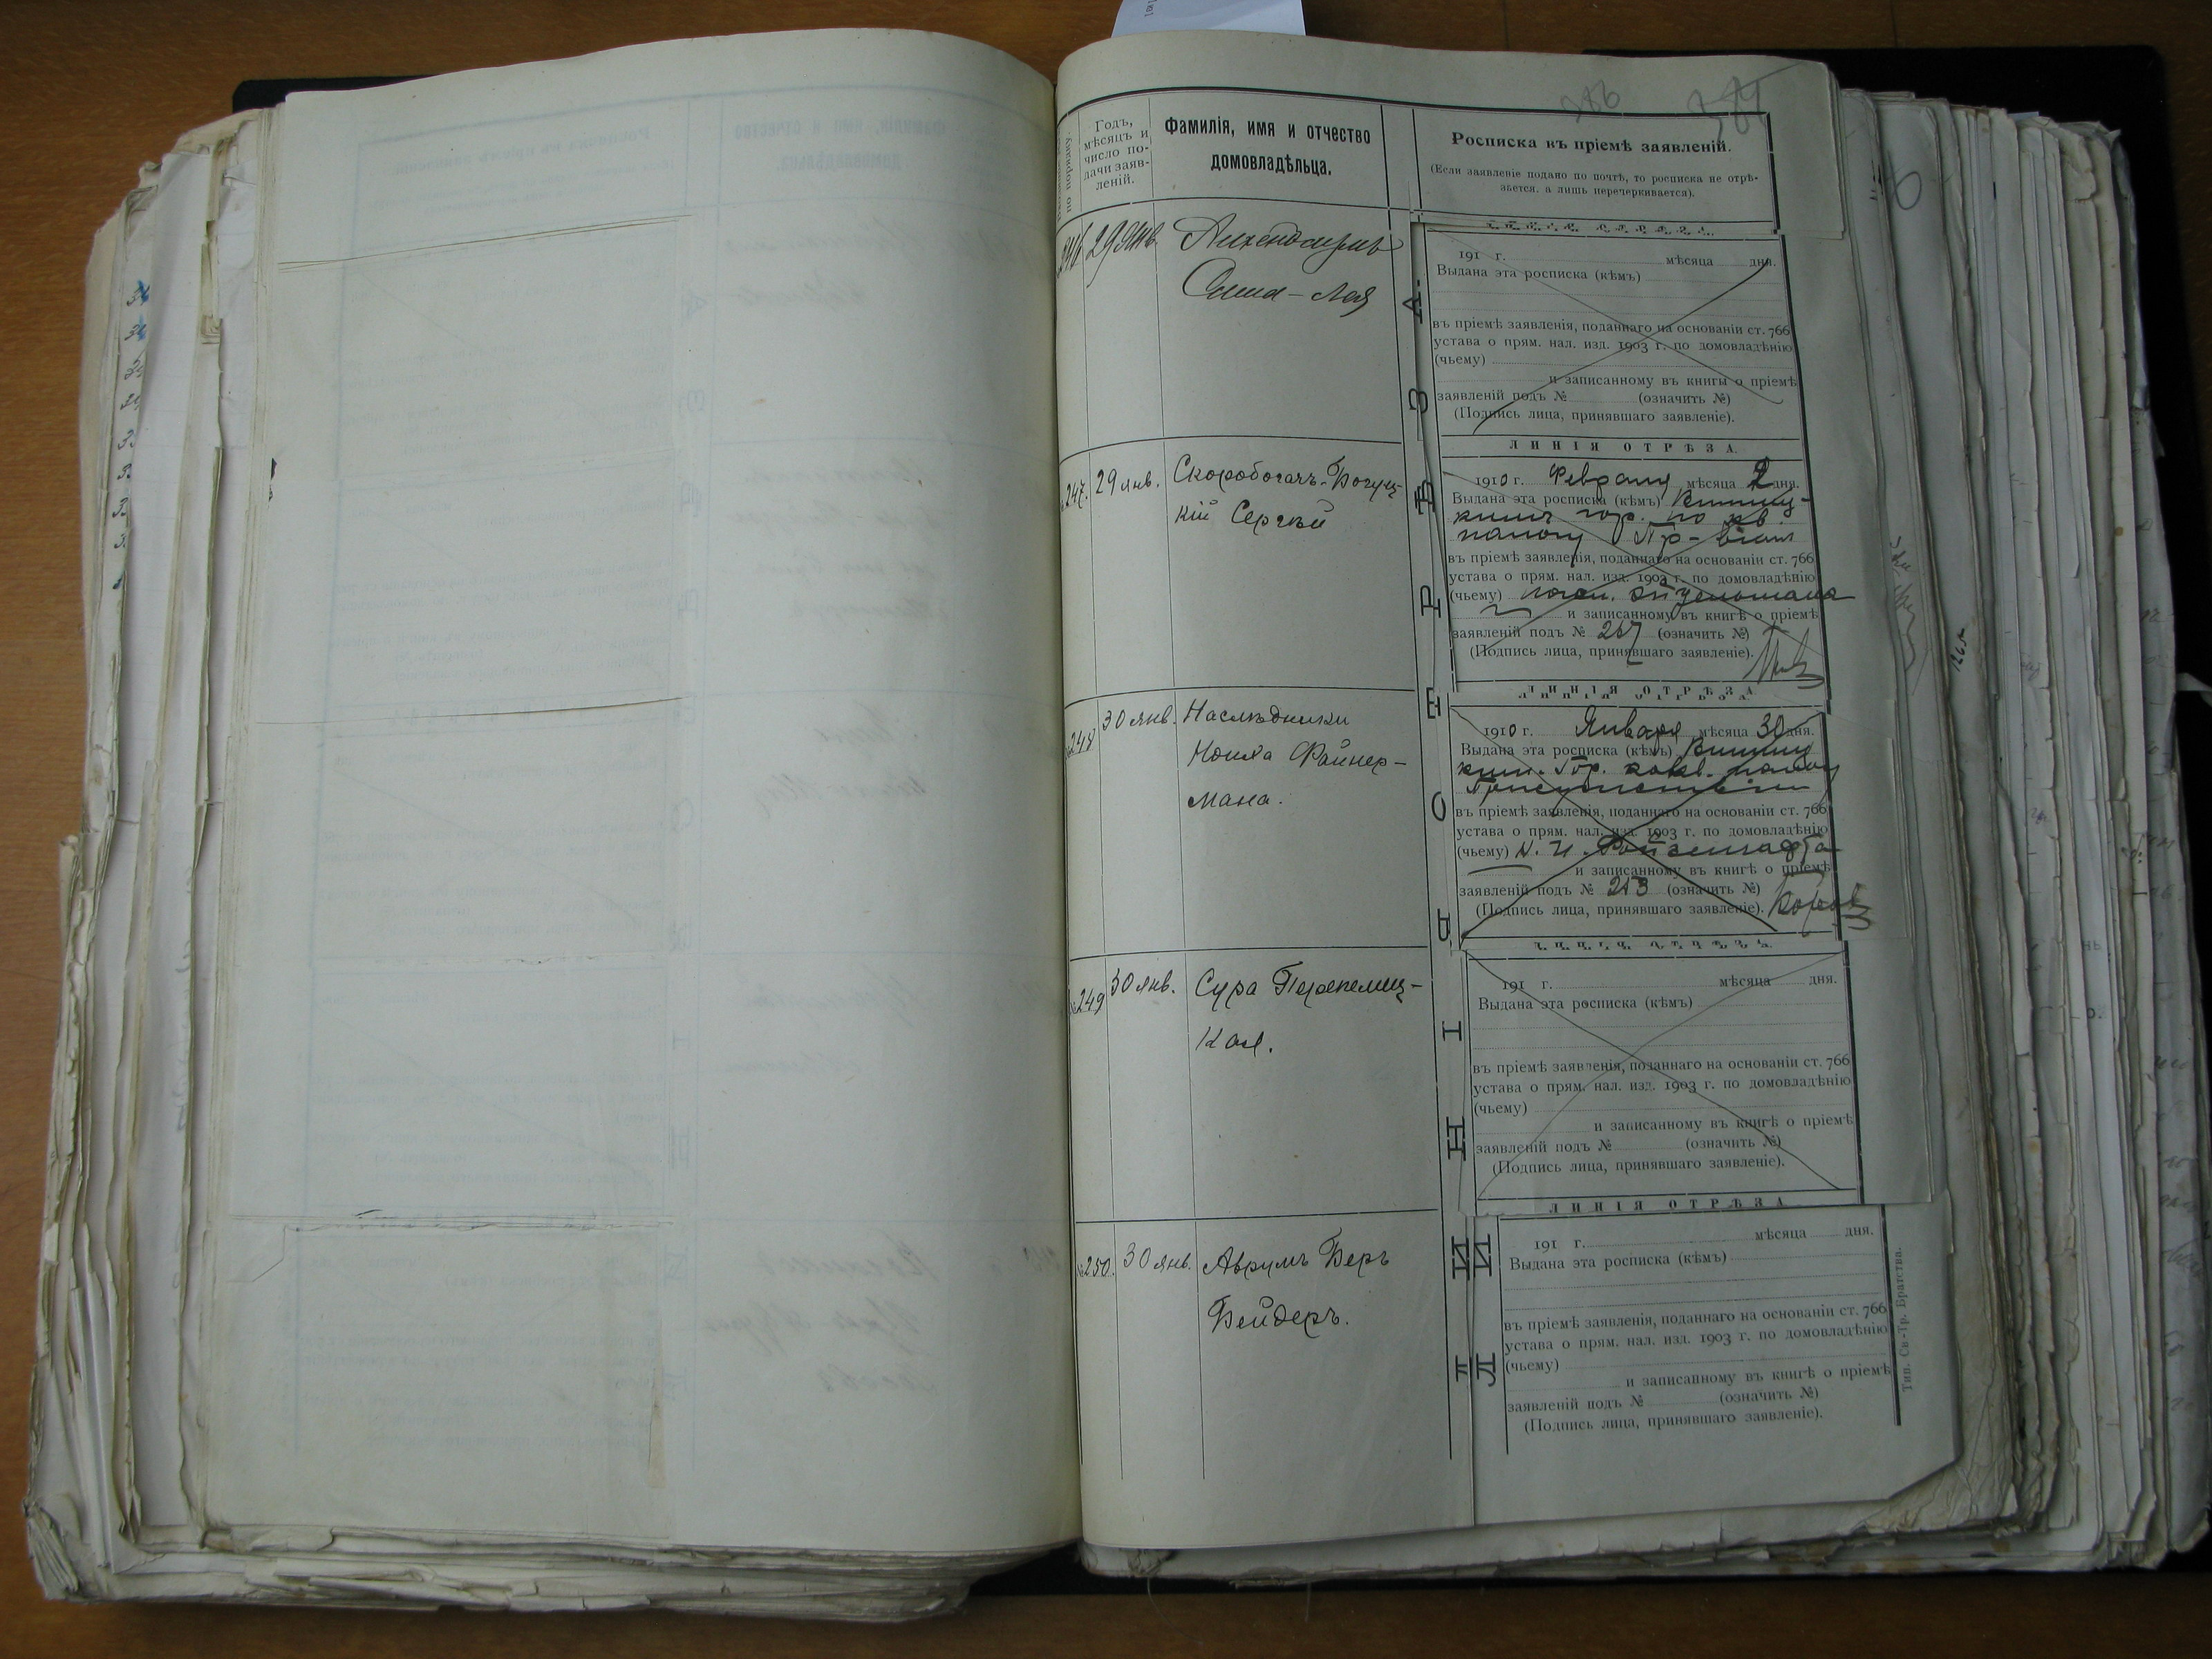 по порядку.
Годъ,
мѣсяцъ и
число по-
дачи заяв-
леній.
Фамилія, имя и отчество
домовладѣльца.
Росписка въ пріемѣ заявленій.
(Если заявленіе подано по почтѣ, то росписка не отрѣ-
зается, а лишь перечеркивается).
246 29 Янв.
191 г. мѣсяца дня.
Выдана эта росписка (кѣмъ)
въ пріемѣ заявленія, поданнаго на основаніи ст. 766
устава о прям. нал. изд. 1903 г. по домовладѣнію
(чьему)
и записанному въ книгы о пріемѣ
заявленій подъ № (означить №)
(Подпись лица, принявшаго заявленіе).
ЛИНІЯ ОТРѢЗА
247. 29 янв. Скоробогачъ-Богуц-
кій Сергѣй
1910 г. Февраля мѣсяца 2 дня.
Выдана эта росписка (кѣмъ) Винниц-
гор. по кв.
налогу
въ пріемѣ заявленія, поданнаго на основаніи ст. 766
устава о прям. нал. изд. 1903 г. по домовладѣнію
(чьему)
и записанному въ книгѣ о пріемѣ
заявленій подъ № 267 (означить №)
(Подпись лица, принявшаго заявленіе).
ЛИНІЯ ОТРѢЗА
248 30 янв. Наслѣдники
Ноиха Файнер-
мана.
1910 г. Января мѣсяца 30 дня.
Выдана эта росписка (кѣмъ) Винниц
Гор.
Присутствіем
въ пріемѣ заявленія, поданнаго на основаніи ст. 766
устава о прям. нал. изд. 1903 г. по домовладѣнію
(чьему)
и записанному въ книгѣ о пріемѣ
заявленій подъ № 253 (означить №)
(Подпись лица, принявшаго заявленіе).
№249 30 янв. Сура Перепелиц-
кая.
191 г. мѣсяца дня.
Выдана эта росписка (кѣмъ)
въ пріемѣ заявленія, поданнаго на основаніи ст. 766
устава о прям. нал. изд. 1903 г. по домовладѣнію
(чьему)
и записанному въ книгѣ о пріемѣ
заявленій подъ № (означить №)
(Подпись лица, принявшаго заявленіе).
ЛИНІЯ ОТРѢЗА
№250. 30 янв. Аврумъ Беръ
Бейдеръ.
191 г. мѣсяца дня.
Выдана эта росписка (кѣмъ)
въ пріемѣ заявленія, поданнаго на основаніи ст. 766
устава о прям. нал. изд. 1903 г. по домовладѣнію
(чьему)
и записанному въ книгѣ о пріемѣ
заявленій подъ № (означить №)
(Подпись лица, принявшаго заявленіе).
Тип. Св.-Тр. Братства.